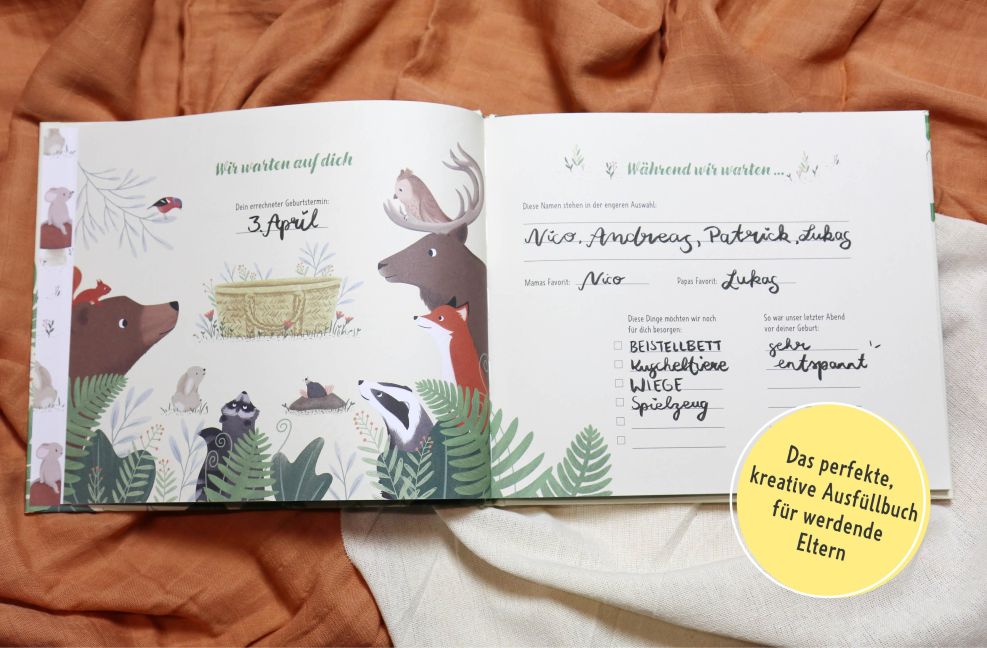 Wir warten auf dich
Dein errechneter Geburtstermin:
3. April
Während wir warten ...
Diese Namen stehen in der engeren Auswahl:
Nico, Andreas, Patrick, Lukas
Mamas Favorit: Nico Papas Favorit: Lukas
Diese Dinge möchten wir noch
für dich besorgen:
BEISTELLBETT
Kuscheltiere
WIEGE
Spielzeug
So war unser letzter Abend
vor deiner Geburt:
sehr
entspannt
Das perfekte,
kreative Ausfüllbuch
für werdende
Eltern